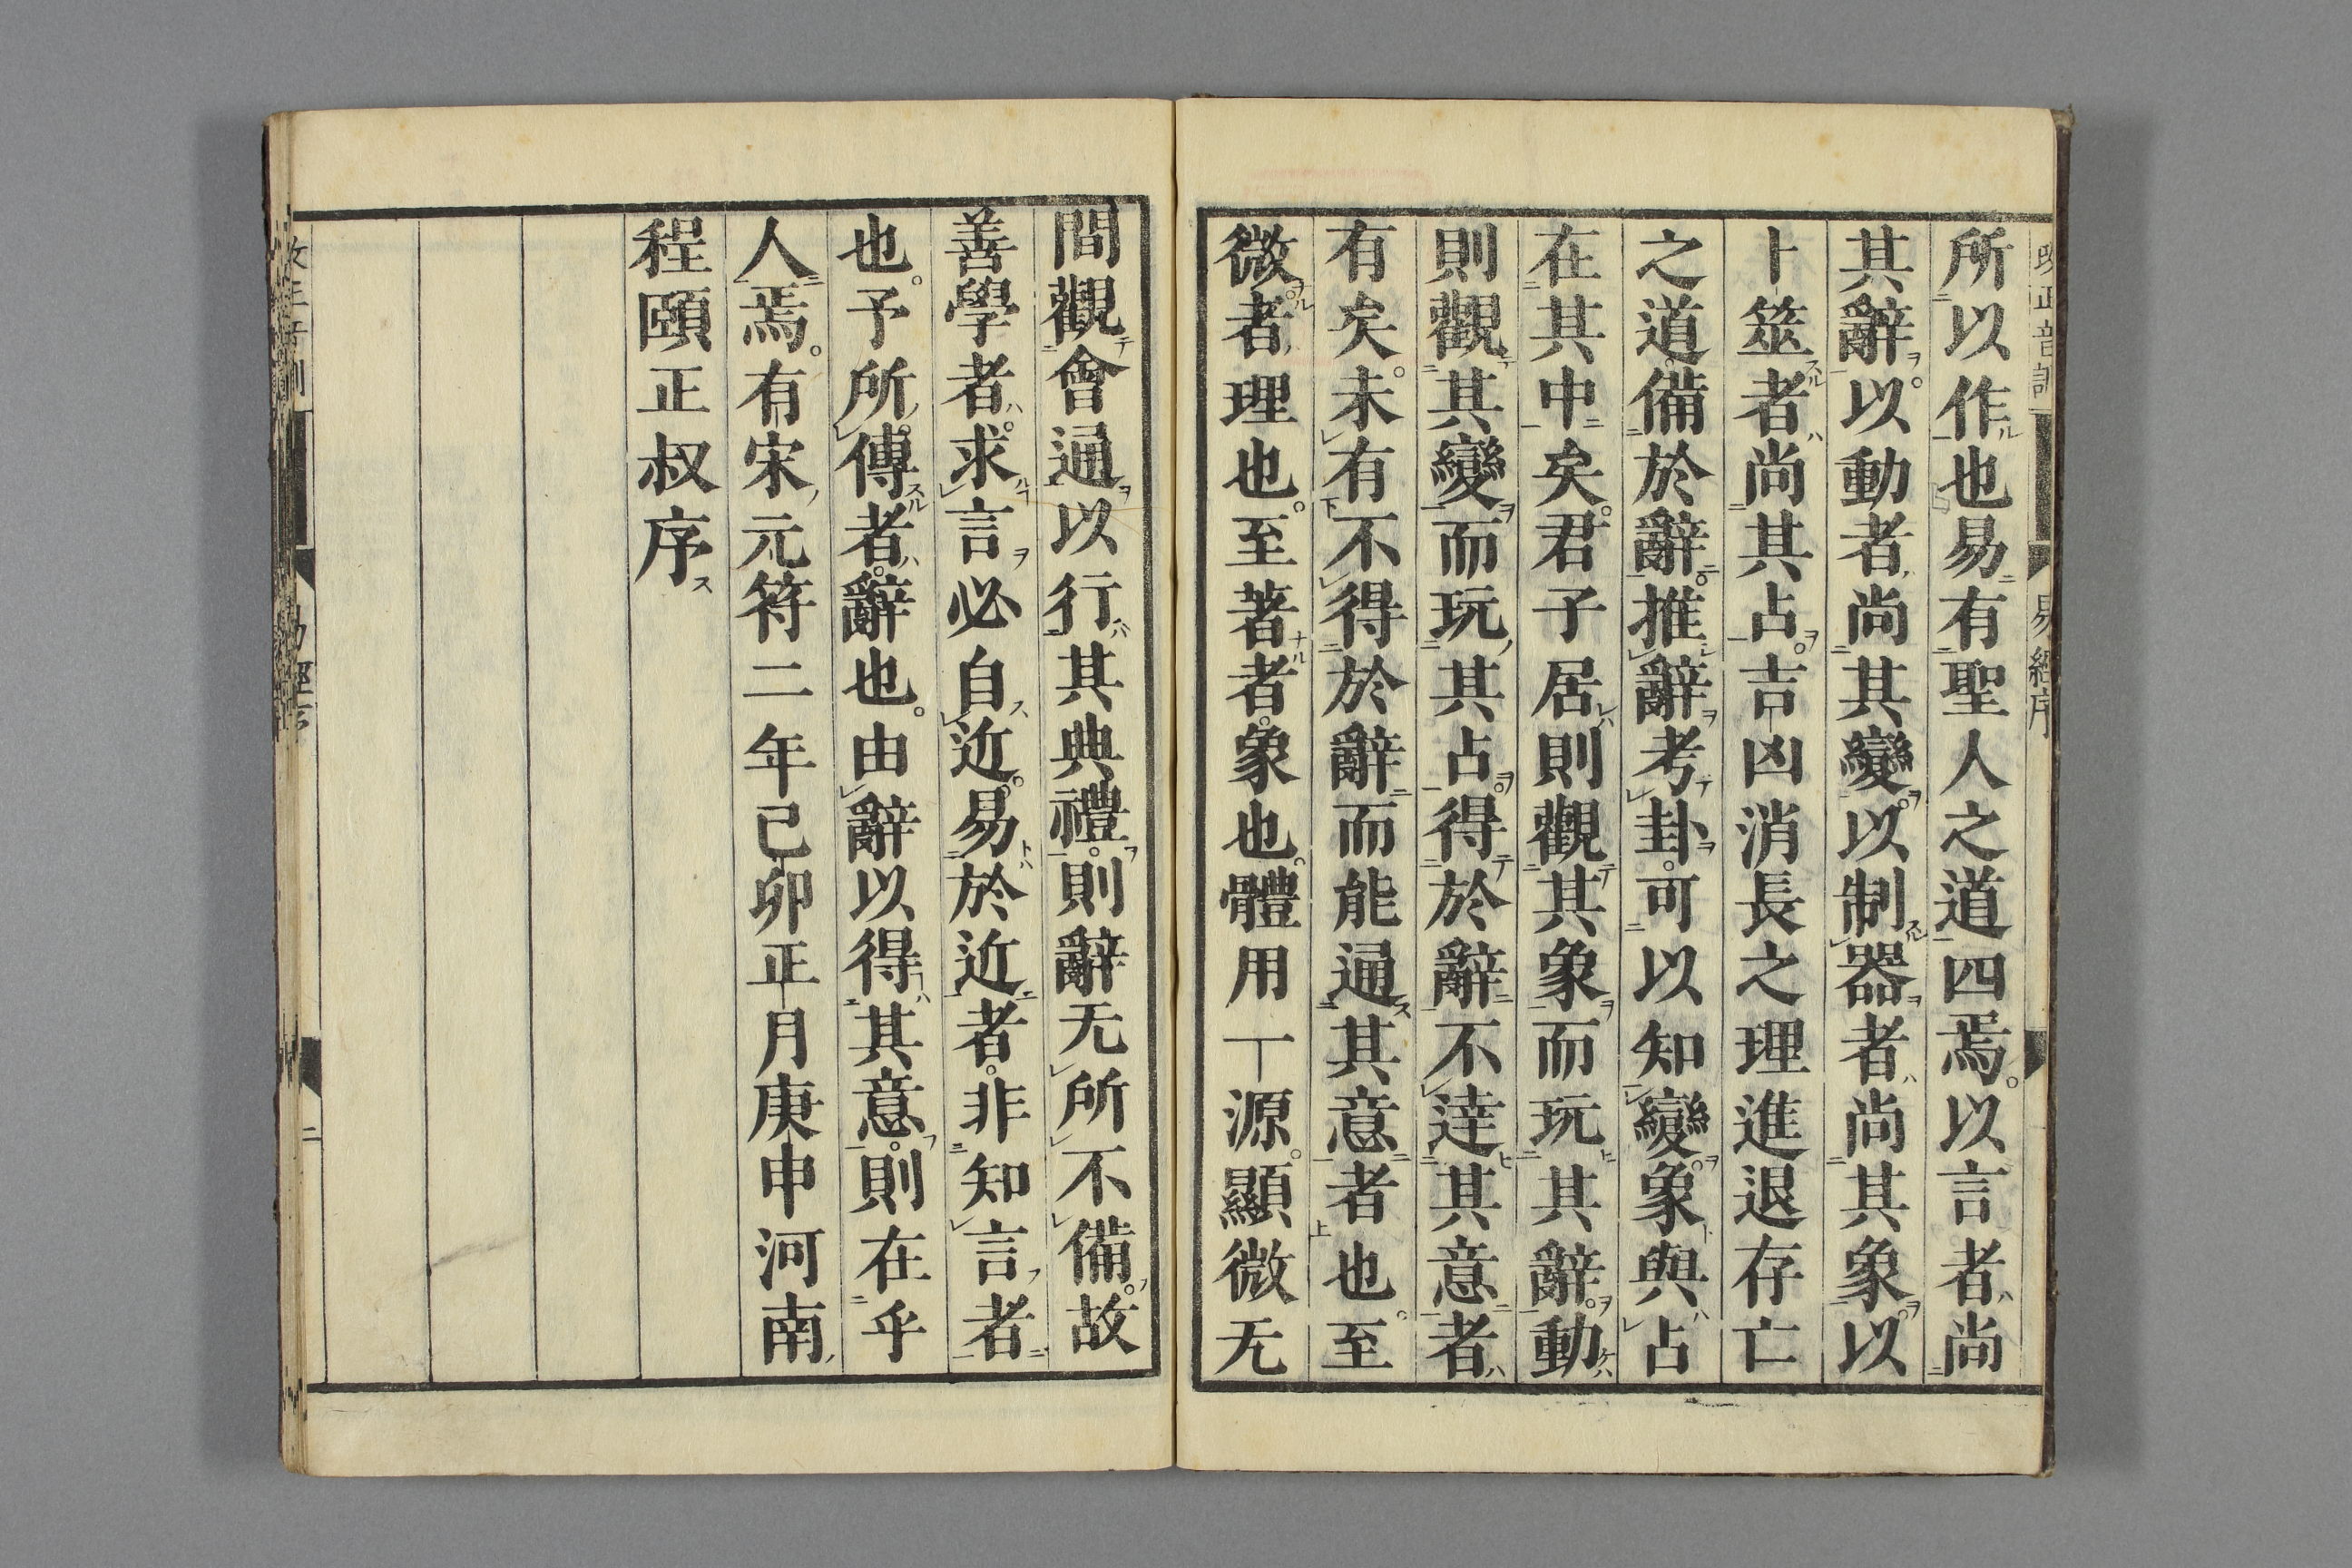 所以作也易有聖人之道四焉。以言者尚
其辭。以動者尚其變。以制器者尚其象。以
卜筮者尚其占。吉凶消長之理進退存亡
之道。備於辭。推辭考卦。可以知變。象與占
在其中矣。君子居則觀其象而玩其辭。動
則觀其變而玩其占。得於辭不達其意者
有矣。未有不得於辭而能通其意者也。至
微。者理也。至著者。象也。體用一源。顯微无
間觀會通以行其典禮。則辭无所不備。故
善學者。求言必自近。易於近者。非知言者
也。予所。傳者。辭也。由辭以得其意。則在乎
人焉。有宋元符二年己卯正月庚申河南
程頤正叔序
易經序
二